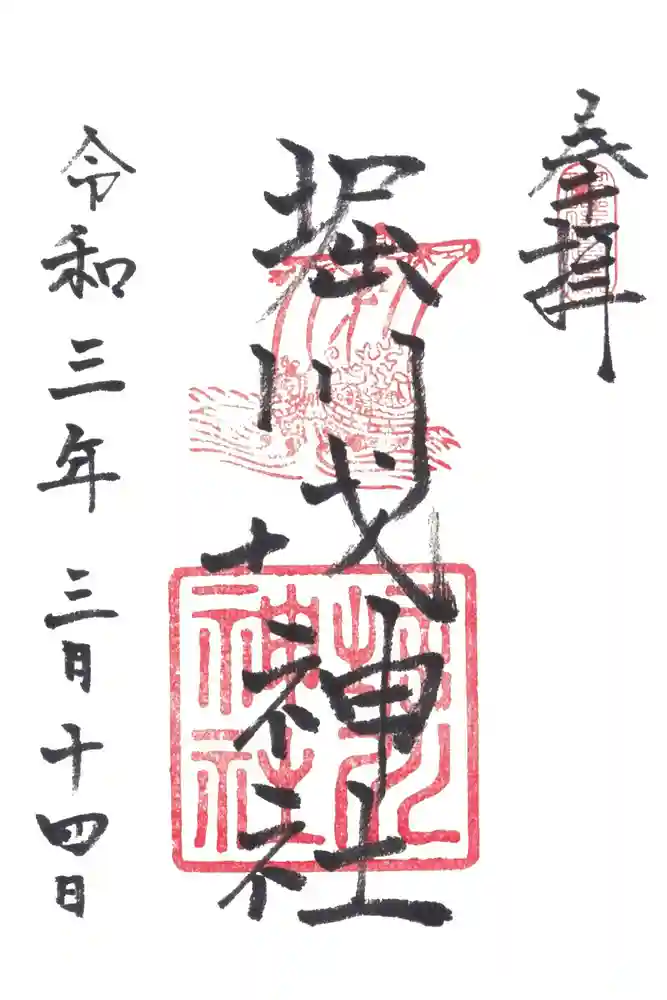 奉拝
堀川戎神社
堀川
神社
令和三年三月十四日